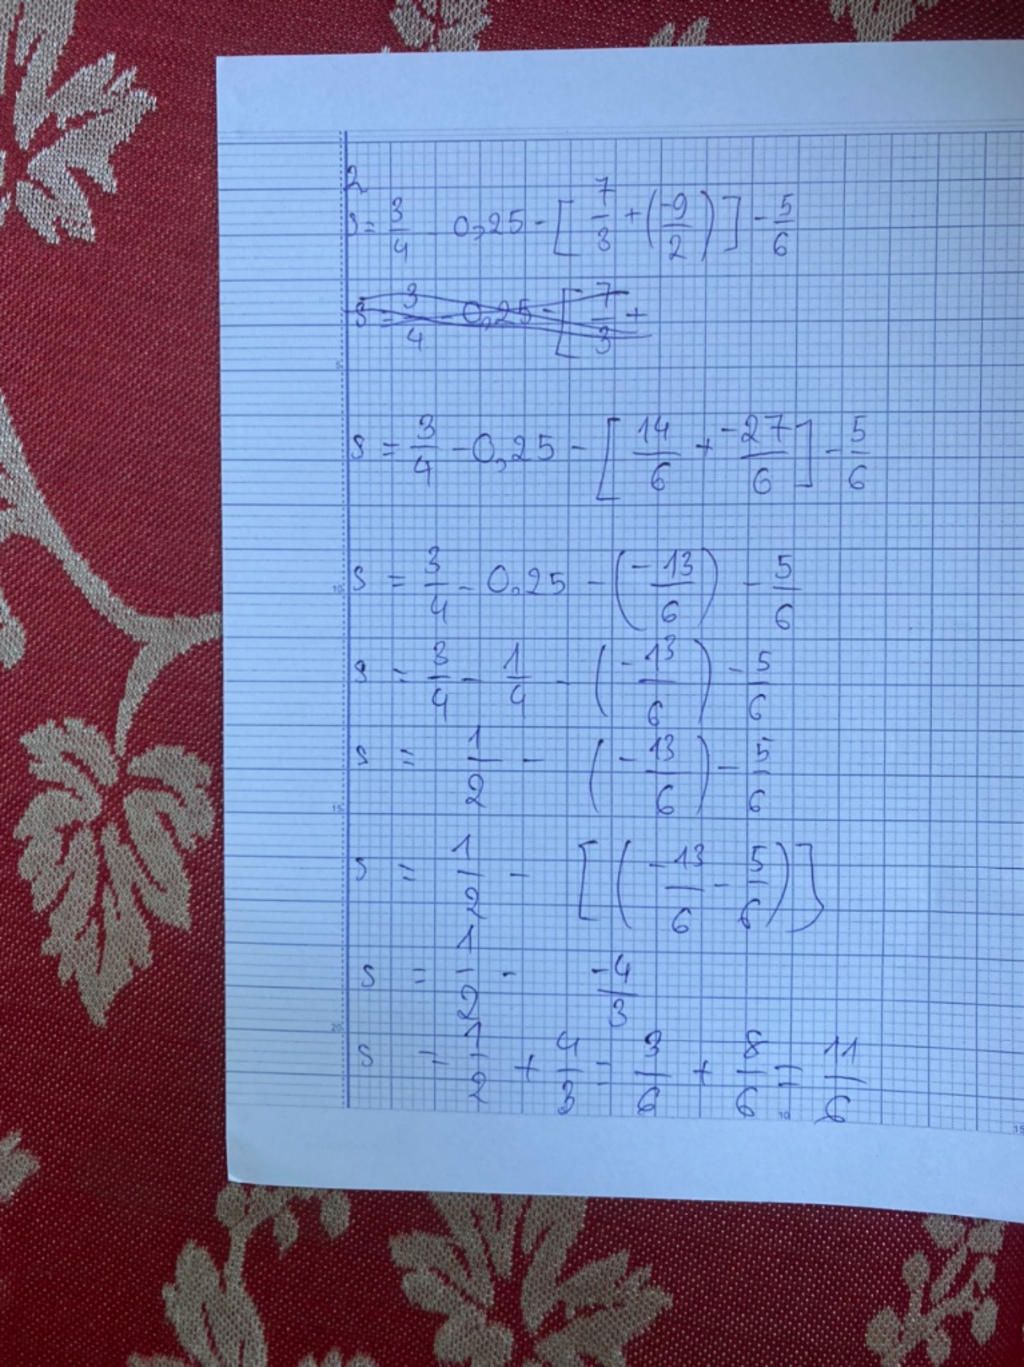 2
S = 3/4 - 0,25 - [7/3 + (-9/2)] - 5/6
S = 3/4 - 0,25 - [7/3 +
S = 3/4 - 0,25 - [14/6 + -27/6] - 5/6
S = 3/4 - 0,25 - (-13/6) - 5/6
S = 3/4 - 1/4 - (-13/6) - 5/6
S = 1/2 - (-13/6) - 5/6
S = 1/2 - [(-13/6 - 5/6)]
S = 1/2 - -4/3
S = 1/2 + 4/3 = 3/6 + 8/6 = 11/6